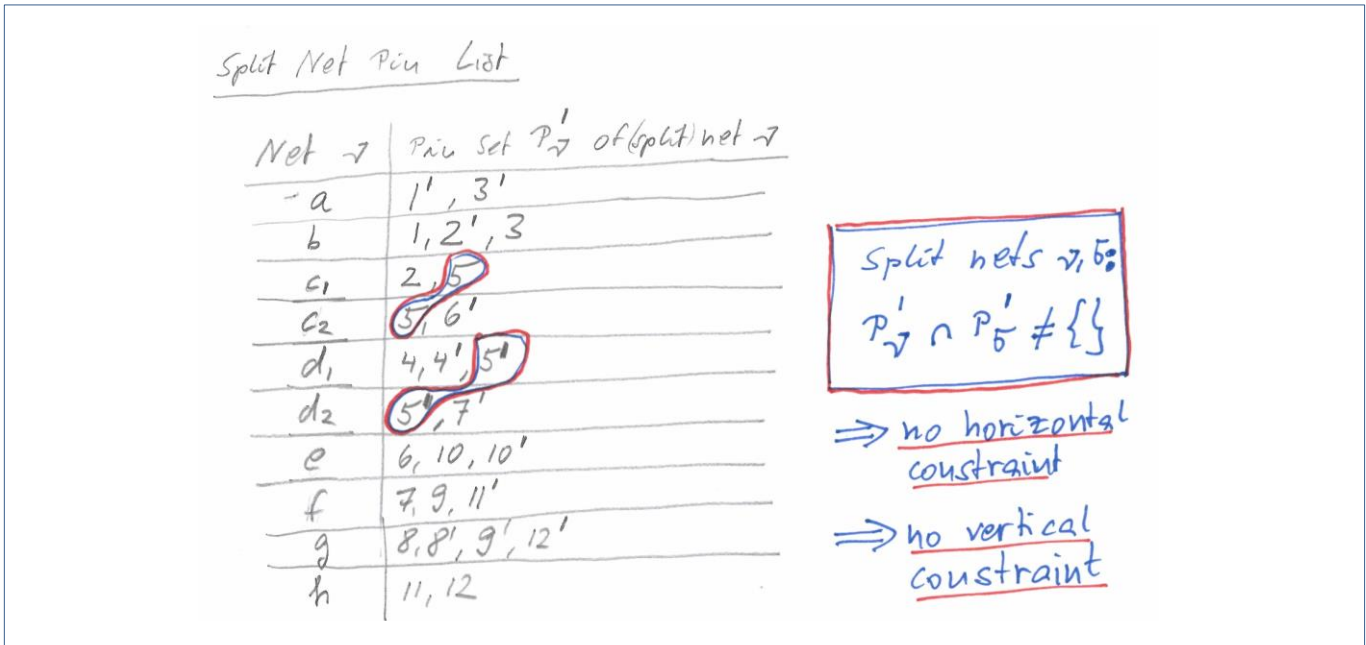 Split Net Pin List
Net ν | Pin Set P'ν of (split) net ν
- a | 1', 3'
b | 1, 2', 3
c1 | 2, 5
c2 | 5, 6'
d1 | 4, 4', 5'
d2 | 5', 7'
e | 6, 10, 10'
f | 7, 9, 11'
g | 8, 8', 9', 12'
h | 11, 12
Split nets ν, σ:
P'ν ∩ P'σ ≠ {}
⇒ no horizontal
constraint
⇒ no vertical
constraint